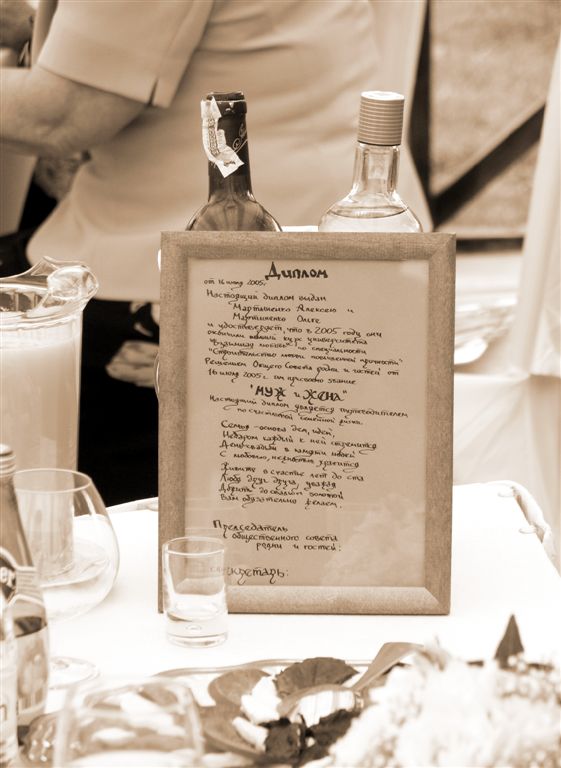 Диплом
от 16 июля 2005г.
Настоящий диплом выдан
Мартыненко Алексею и
Мартыненко Ольге
и удостоверяет, что в 2005 году они
окончили полный курс университета
"Взаимная любовь" по специальности
"Строительство семьи повышенной прочности"
Решением Общего Совета родни и гостей от
16 июля 2005 г. им присвоено звание
"МУЖ и ЖЕНА"
Настоящий диплом является путеводителем
по счастливой семейной жизни.
Семья - основа дел, идей,
Недаром каждый к ней стремится
День свадьбы в памяти людей
С любовью, нежностью хранится
Живите в счастье лет до ста
Любя друг друга, уважая
Дожить до свадьбы золотой
Вам обязательно желаем.
Председатель
общественного совета
родни и гостей:
Секретарь: